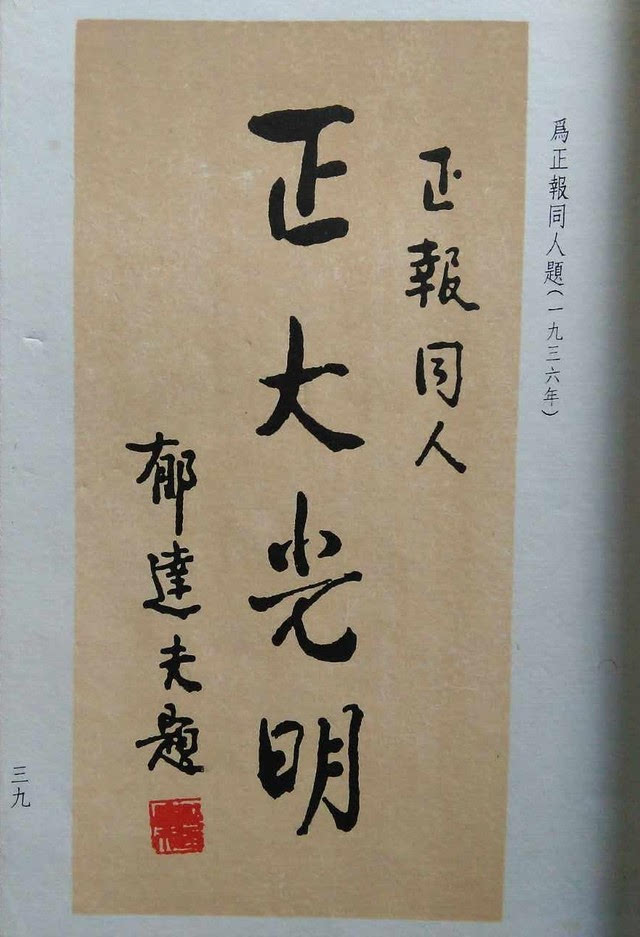 爲正報同人題(一九三六年)
正報同人
正大光明
郁達夫題
三九